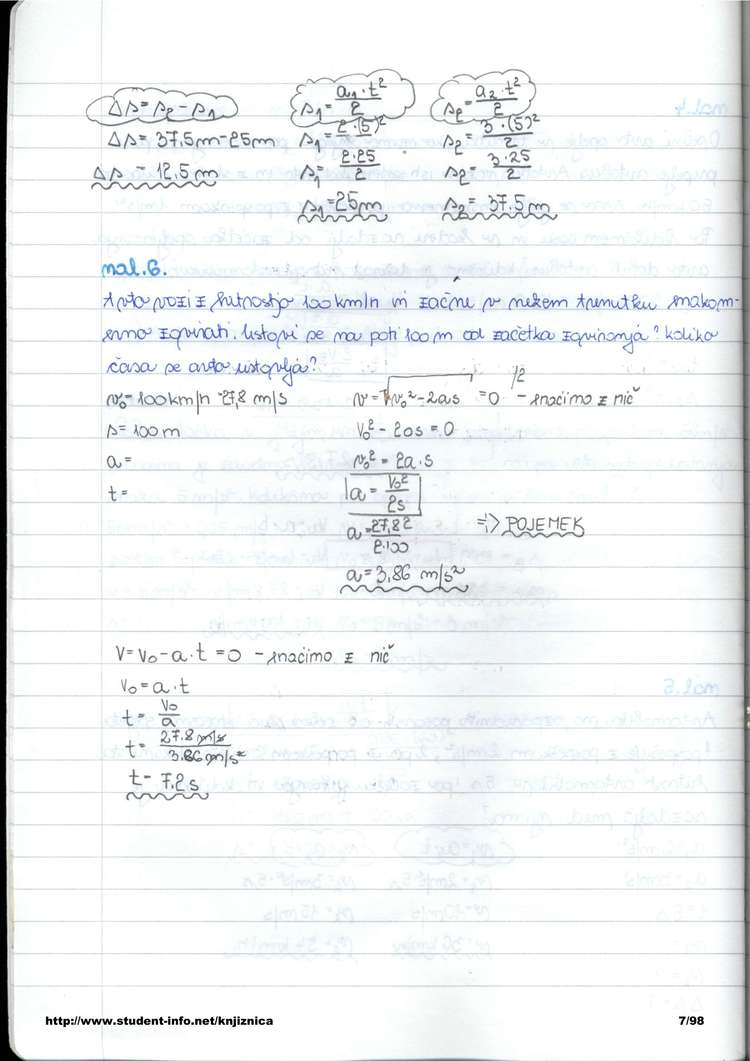 Δs = s₂ - s₁
Δs = 37,5m - 25m
Δs = 12,5m
s₁ = a₁·t²/2
s₁ = 2·(5)²/2
s₁ = 2·25/2
s₁ = 25m
s₂ = a₂·t²/2
s₂ = 3·(5)²/2
s₂ = 3·25/2
s₂ = 37,5m
nal.6.
Avto vozi z hitrostjo 100km/h in začne v nekem trenutku enakom-
erno zavirati. Ustavi se na poti 100m od začetka zaviranja? koliko
časa se avto ustavlja?
v₀ = 100km/h = 27,8 m/s
s = 100m
a =
t =
v = √v₀² - 2as = 0 /² - enačimo z nič
v₀² - 2as = 0
v₀² = 2a·s
a = v₀²/2s
a = 27,8²/2·100 => POJEMEK
a = 3,86 m/s²
v = v₀ - a·t = 0 - enačimo z nič
v₀ = a·t
t = v₀/a
t = 27,8 m/s / 3,86 m/s²
t = 7,2s
http://www.student-info.net/knjiznica
7/98